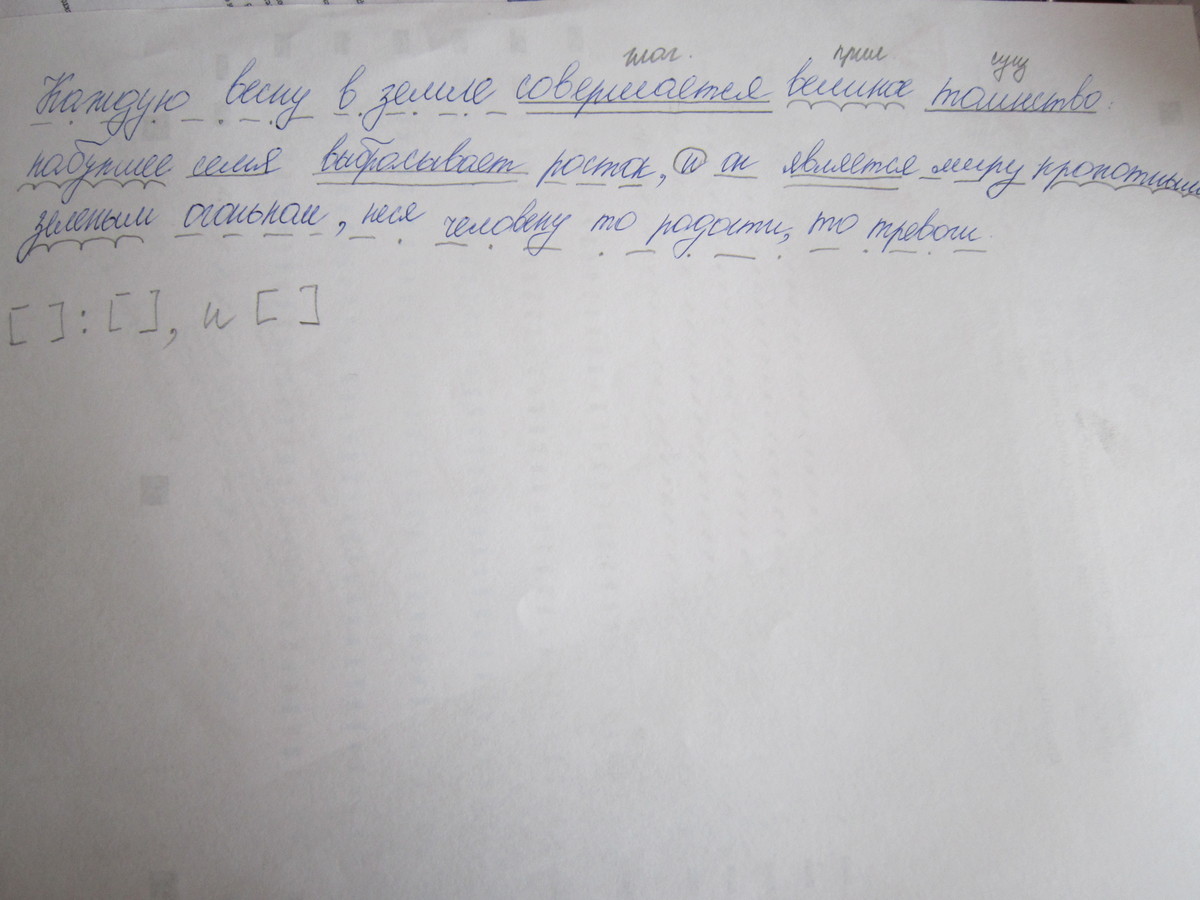 глаг. прил сущ
Каждую весну в земле совершается великое таинство:
набухшее семя выбрасывает росток, и он является миру крохотным
зеленым огоньком, неся человеку то радости, то тревоги.
[ ]: [ ], и [ ]